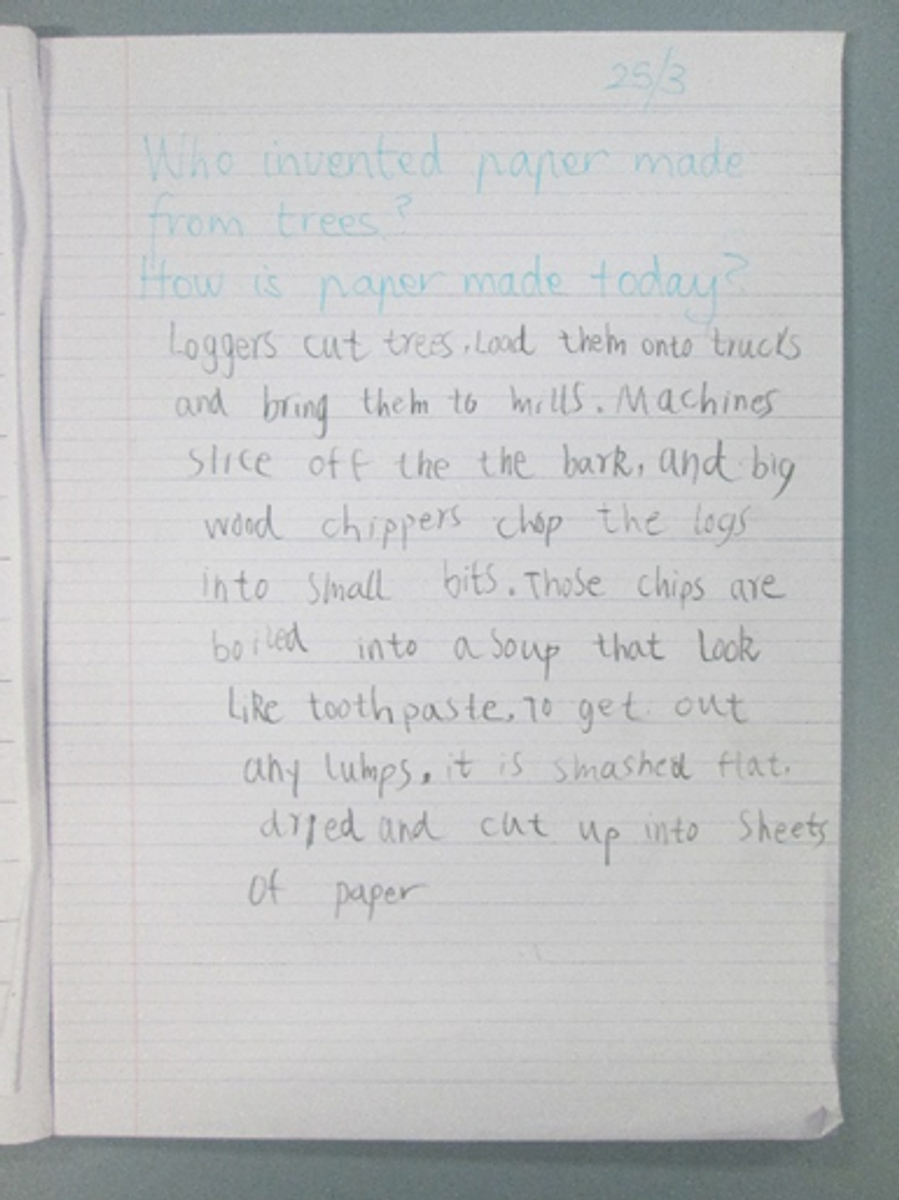 25/3
Who invented paper made
from trees?
How is paper made today?
Loggers cut trees, Load them onto trucks
and bring them to mills. Machines
slice off the the bark, and big
wood chippers chop the logs
into small bits. Those chips are
boiled into a soup that look
like toothpaste. To get out
any lumps, it is smashed flat.
dryed and cut up into sheets
of paper